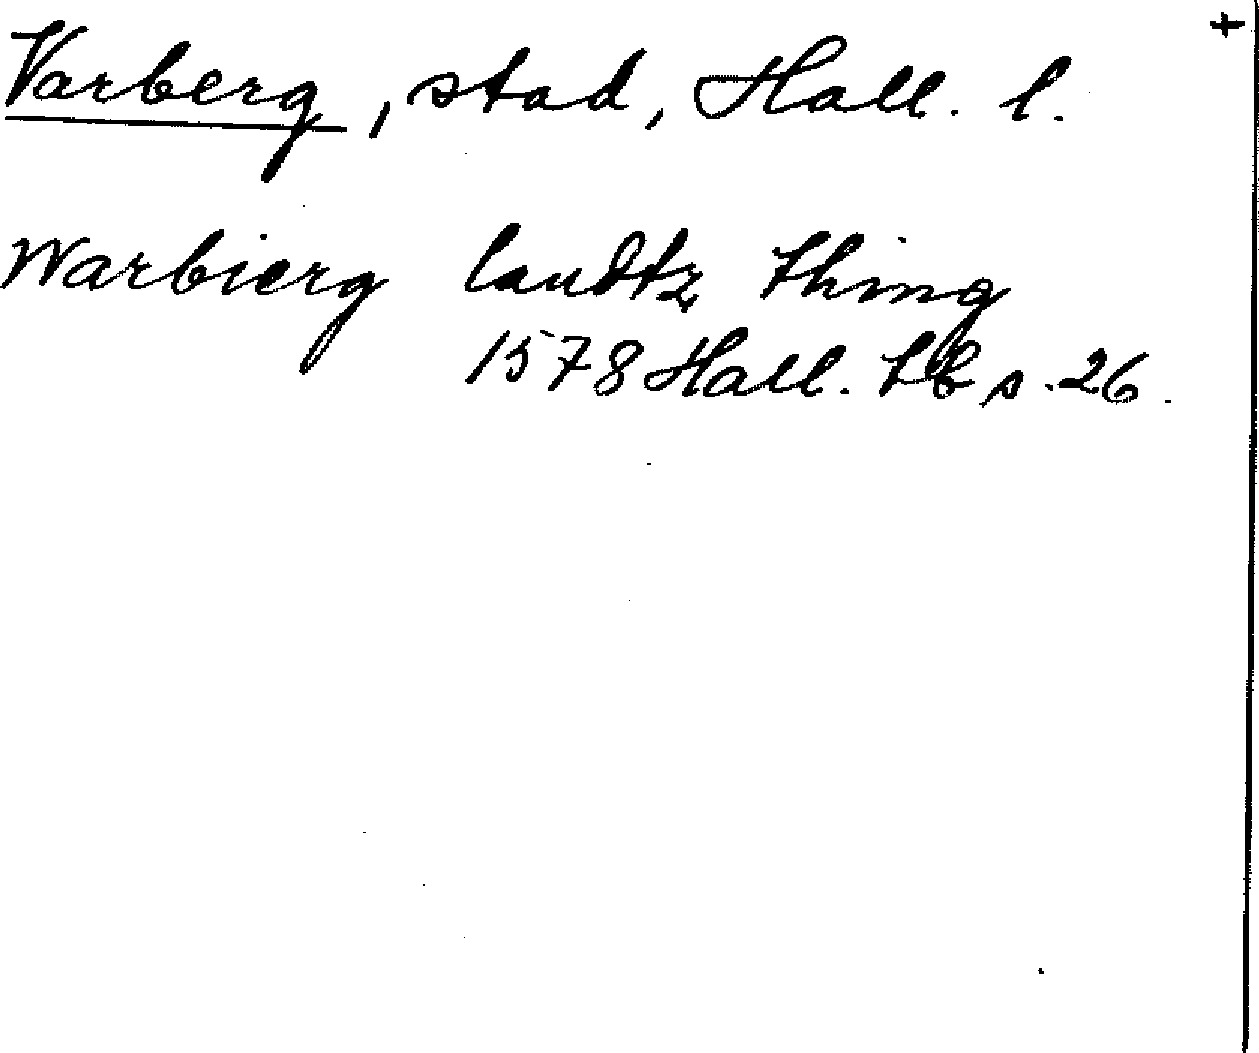 +
Varberg, stad, Hall. l.
Warbierg landtz thing
1578 Hall. Lb s. 26.